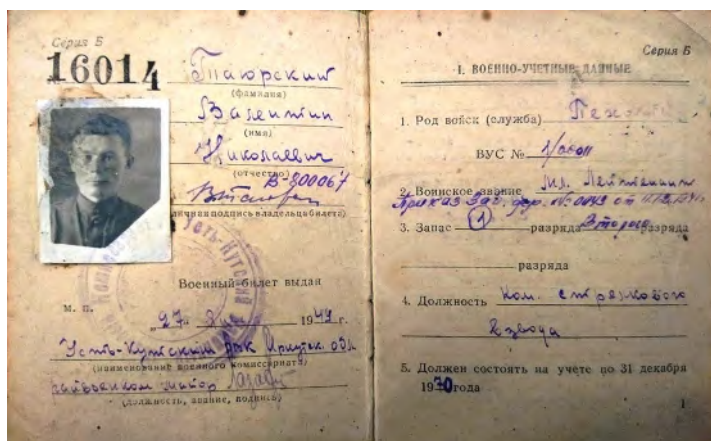 Серия Б
16014
Таюрский
(фамилия)
Валентин
(имя)
Николаевич
(отчество)
В-800067
(личная подпись владельца билета)
Военный билет выдан
м. п.
"27" 1949 г.
Усть-Кутский рвк Иркутск. обл
(наименование военного комиссариата)
райвоенком майор
(должность, звание, подпись)
Серия Б
I. ВОЕННО-УЧЕТНЫЕ ДАННЫЕ
1. Род войск (служба) Пехота
ВУС №
2. Воинское звание Мл. Лейтенант
Приказ
3. Запас 1 разряда Второго разряда
разряда
4. Должность Ком. стрелкового
взвода
5. Должен состоять на учете по 31 декабря
1970 года
1